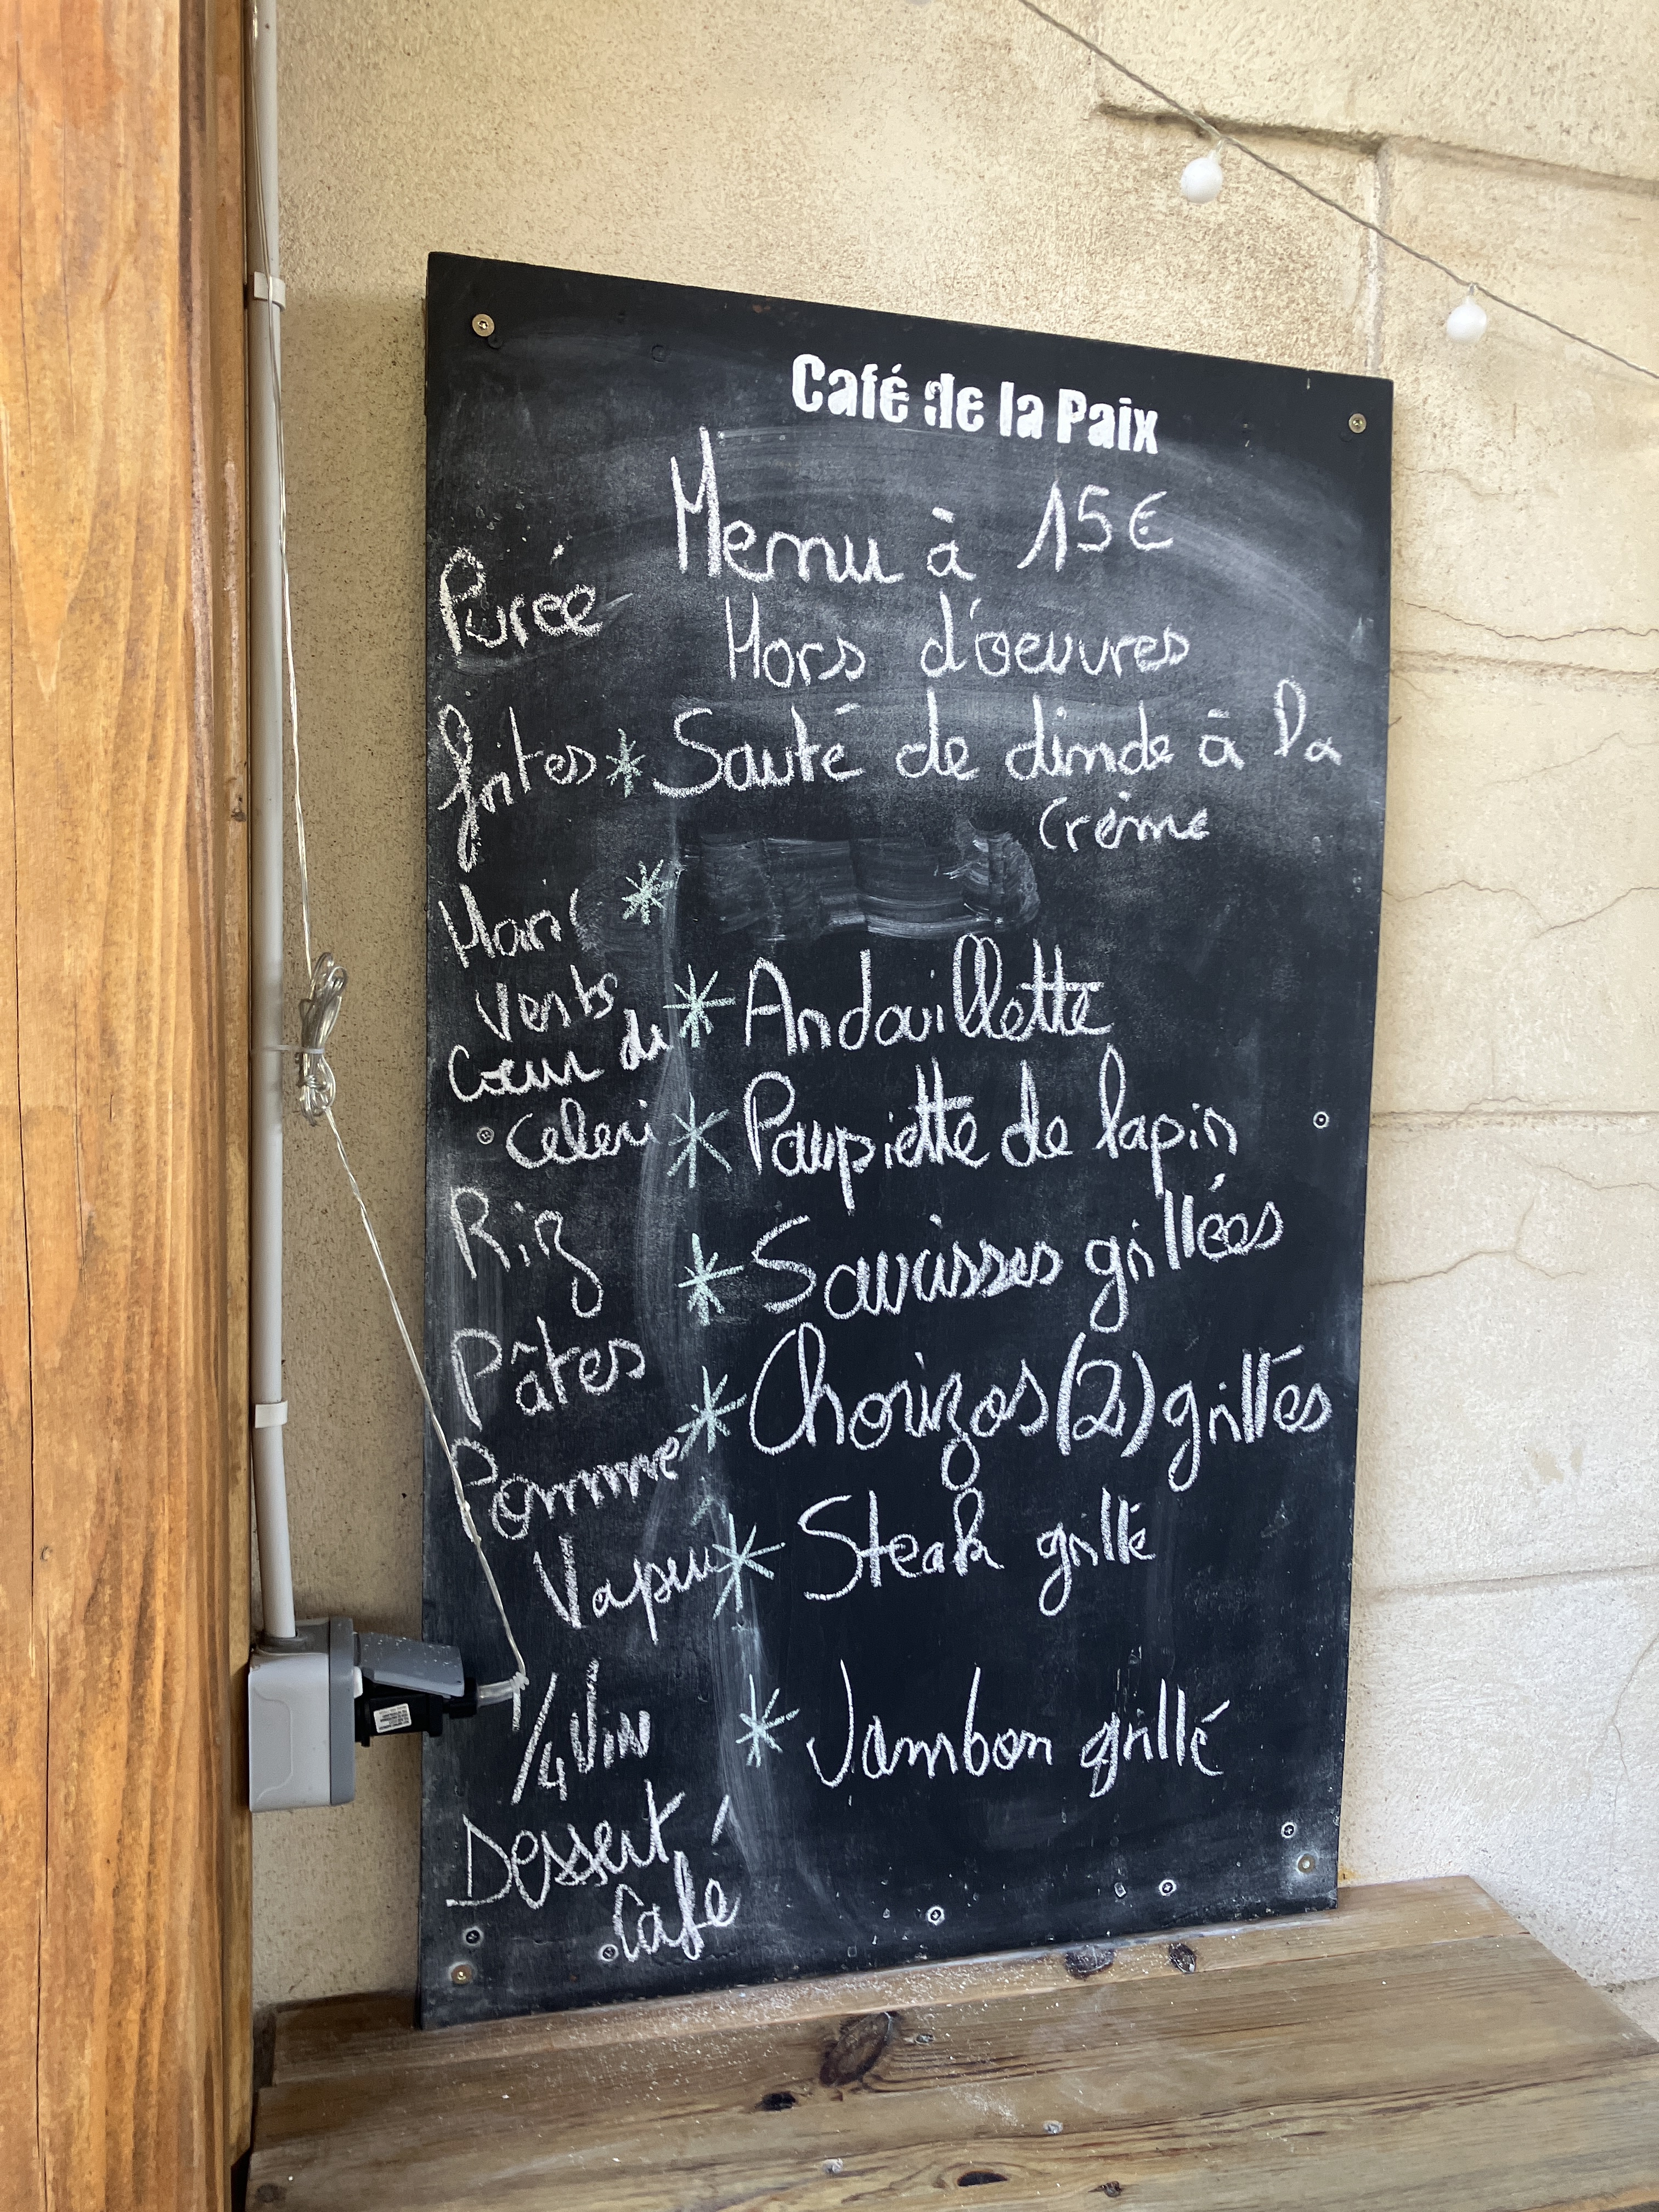 Café de la Paix
Menu à 15€
Hors d'oeuvres
Purée
frites
* Sauté de dinde à la
crème
Hari
*
verts
* Andouillette
Cœur de
Celeri
* Paupiette de lapin
Riz
* Saucisses grillées
Pâtes
* Chorizos (2) grillés
Pomme
Vapeur
* Steak grillé
1/4 Vin
* Jambon grillé
Dessert
Café